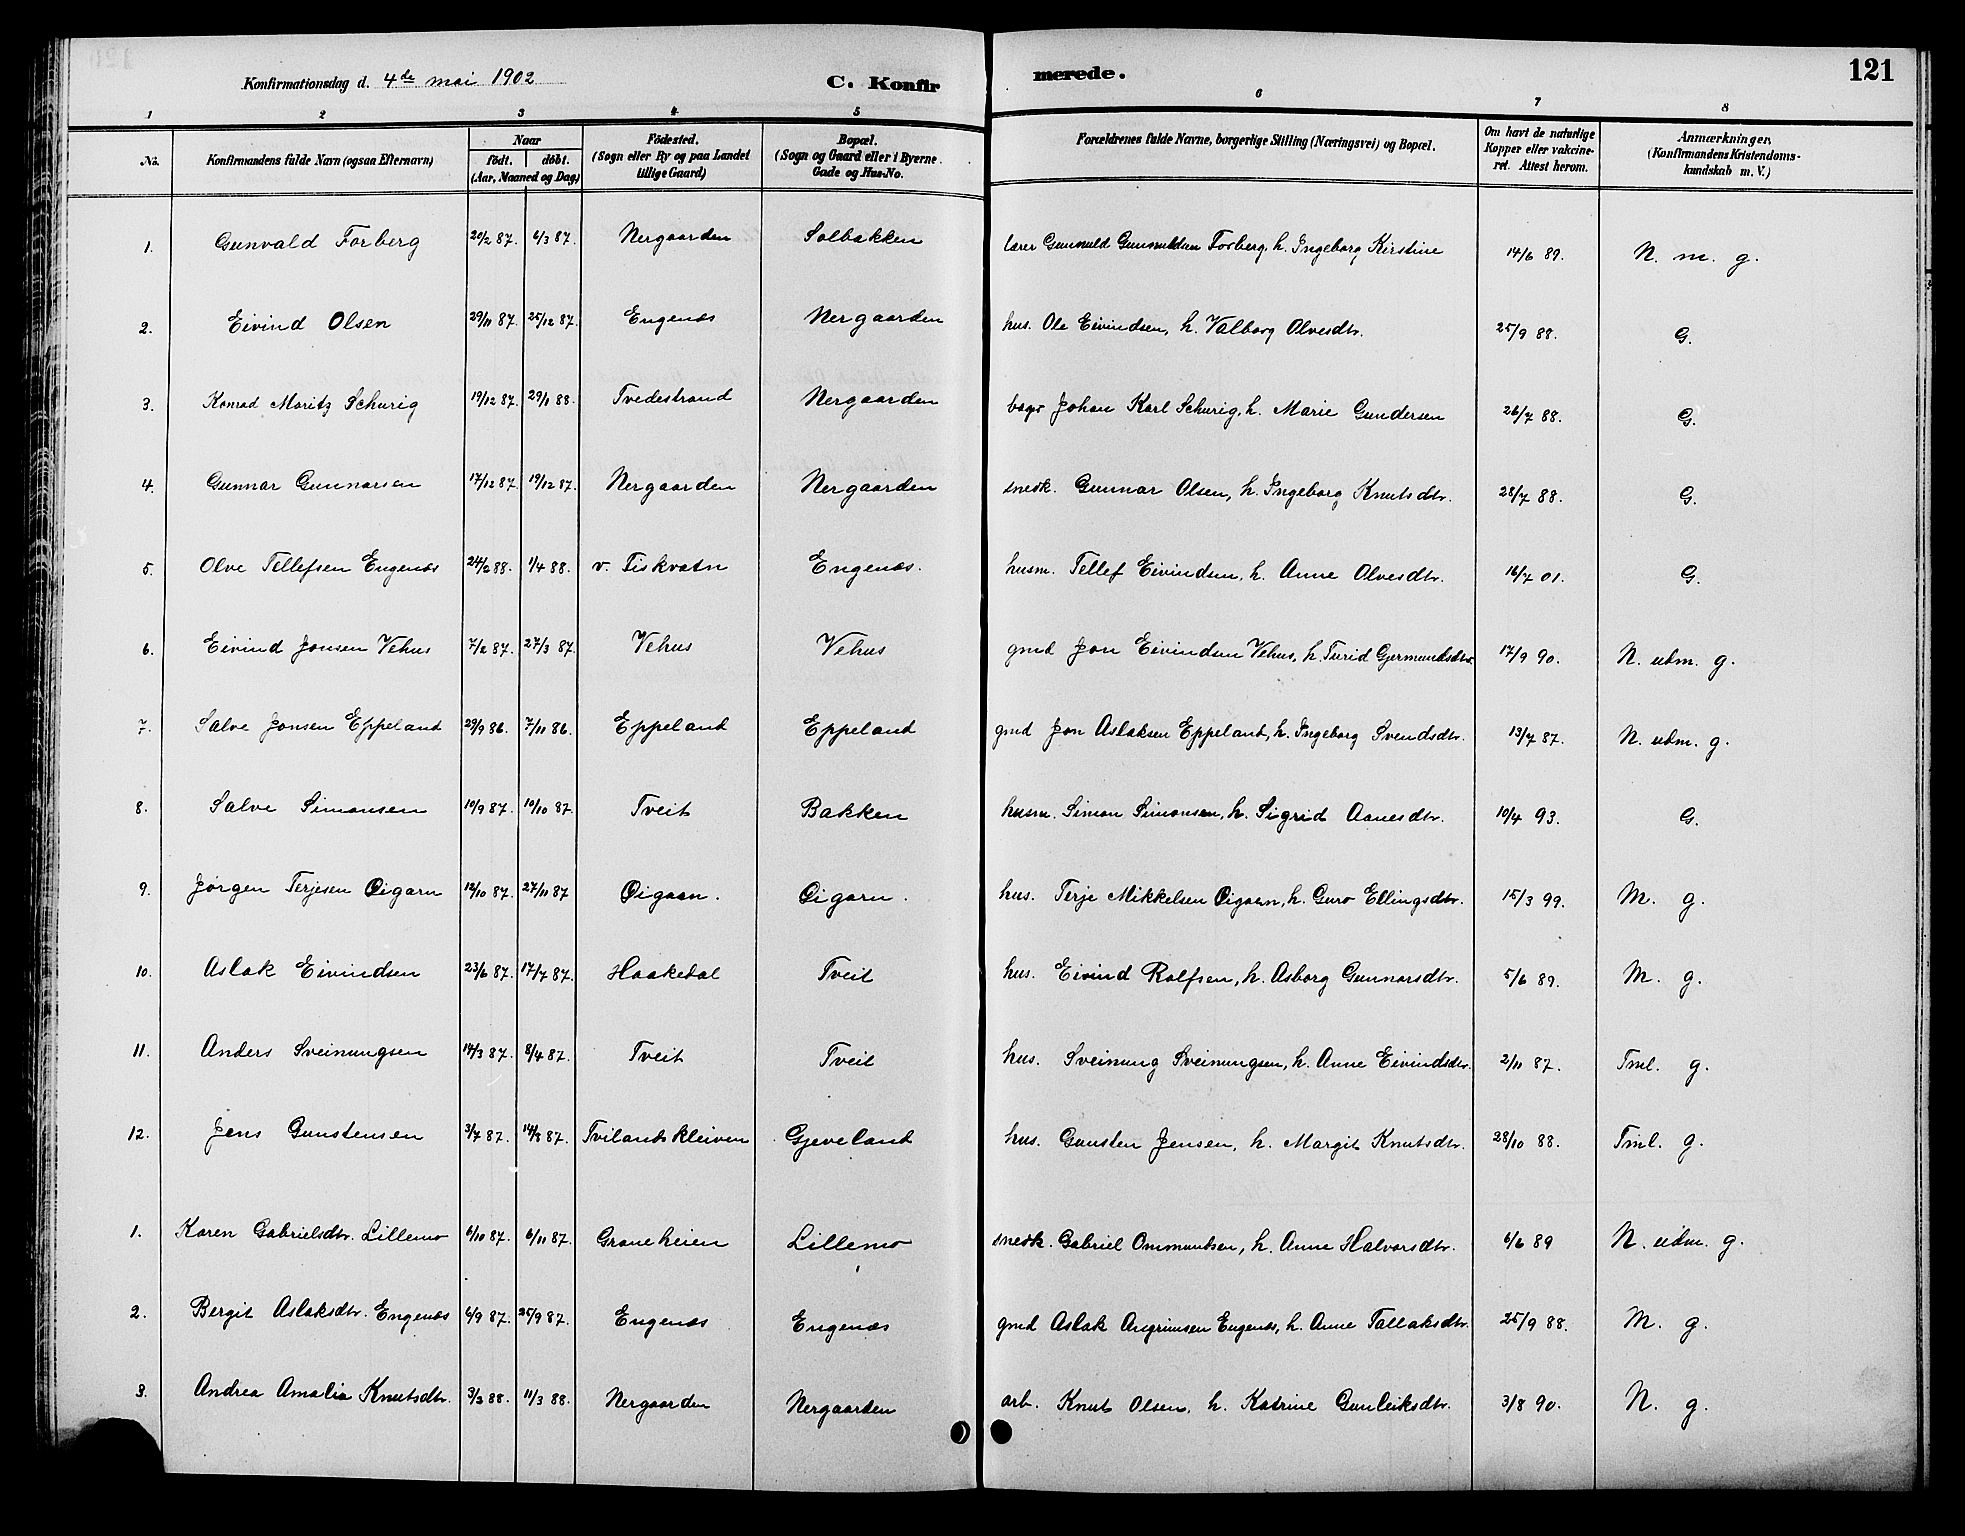 Konfirmationsdag d. 4de mai 1902 C. Konfirmerede. 121
1 2 3 4 5 6 7 8
No. Konfirmandens fulde Navn (ogsaa Efternavn) Naar födt. döbt. (Aar, Maaned og Dag) Födested. (Sogn eller By og paa Landet tillige Gaard) Bopæl. (Sogn og Gaard eller i Byerne Gade og Hus-No. Forældrenes fulde Navne, borgerlige Stilling (Næringsvei) og Bopæl. Om havt de naturlige Kopper eller vakcineret. Attest herom. Anmærkninger, (Konfirmandens Kristendomskundskab m. V.)
1. Gunvald Forberg 20/2 87. 6/3 87. Nergaarden Solbakken lærer Gunvald Forberg, h. Ingeborg Kirstine 14/6 89. N. m. g.
2. Eivind Olsen 29/11 87. 25/12 87. Engenæs Nergaarden hus. Ole Eivindsen, h. Valborg Olvesdtr. 25/9 88. G.
3. Konrad Moritz Schurig 19/12 87. 29/1 88. Tvedestrand Nergaarden bager Johan Karl Schurig, h. Marie Gundersen 26/7 88. G.
4. Gunnar Gunnarsen 17/12 87. 19/12 87. Nergaarden Nergaarden snedk. Gunnar Olsen, h. Ingeborg Knutsdtr. 28/7 88. G.
5. Olve Tellefsen Engenæs 24/2 88. 1/4 88. v. Fiskvatn Engenæs. husm. Tellef Eivindsen, h. Anne Olvesdtr. 16/7 01. G.
6. Eivind Jonsen Vehus 7/2 87. 27/3 87. Vehus Vehus gmd Jon Eivindsen Vehus, h. Turid Gjermundsdtr. 17/9 90. N. udm. g.
7. Salve Jonsen Eppeland 29/9 86. 7/11 86. Eppeland Eppeland gmd Jon Aslaksen Eppeland, h. Ingeborg Svendsdtr. 13/7 87. N. udm. g.
8. Salve Simonsen 10/9 87. 10/10 87. Tveit Bakken husm. Simon Simonsen, h. Sigrid Aanesdtr. 10/4 93. G.
9. Jørgen Terjesen Øigarn 12/10 87. 27/11 87 Øigarn. Øigarn. hus. Terje Mikkelsen Øigarn, h. Guro Ellingsdtr. 15/3 99. M. g.
10. Aslak Eivindsen 23/6 87. 17/7 87. Haakedal Tveit hus. Eivind Rolfsen, h. Asborg Gunnarsdtr. 5/6 89. M. g.
11. Anders Sveinungsen 14/3 87. 8/4 87. Tveit Tveit hus. Sveinung Sveinungsen, h. Anne Eivindsdtr. 2/11 87. Tml. g.
12. Jens Gunstensen 3/7 87. 14/8 87. Tvilandskleiven Gjeveland hus. Gunsten Jensen, h. Margit Knutsdtr. 28/10 88. Tml. g.
1. Karen Gabrielsdtr. Lillemo 6/10 87. 6/11 87. Graneheien Lillemo snedk. Gabriel Ommundsen, h. Anne Halvorsdtr. 6/6 89 N. udm. g.
2. Bergit Aslaksdtr. Engenæs 6/9 87. 25/9 87. Engenæs Engenæs gmd Aslak Angrimsen Engenæs, h. Anne Tallaksdtr. 25/9 88. M. g.
3. Andrea Amalia Knutsdtr. 3/2 88. 11/3 88. Nergaarden Nergaarden arb. Knut Olsen, h. Katrine Gunleiksdtr. 3/8 90. N. g.